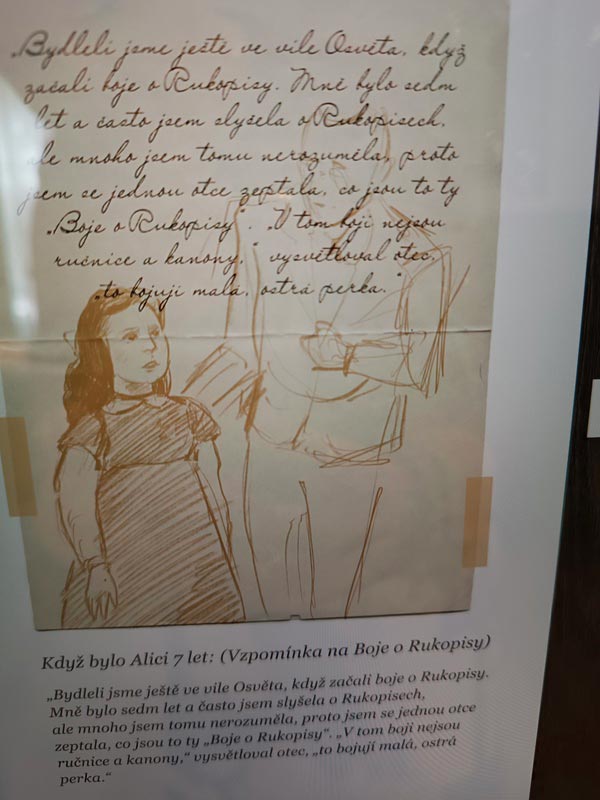 „Bydleli jsme ještě ve vile Osvěta, když
začali boje o Rukopisy. Mně bylo sedm
let a často jsem slyšela o Rukopisech,
ale mnoho jsem tomu nerozuměla, proto
jsem se jednou otce zeptala, co jsou to ty
„Boje o Rukopisy“. „V tom boji nejsou
ručnice a kanony,“ vysvětloval otec,
„to bojují malá, ostrá perka.“
Když bylo Alici 7 let: (Vzpomínka na Boje o Rukopisy)
„Bydleli jsme ještě ve vile Osvěta, když začali boje o Rukopisy.
Mně bylo sedm let a často jsem slyšela o Rukopisech,
ale mnoho jsem tomu nerozuměla, proto jsem se jednou otce
zeptala, co jsou to ty „Boje o Rukopisy“. „V tom boji nejsou
ručnice a kanony,“ vysvětloval otec, „to bojují malá, ostrá
perka.“